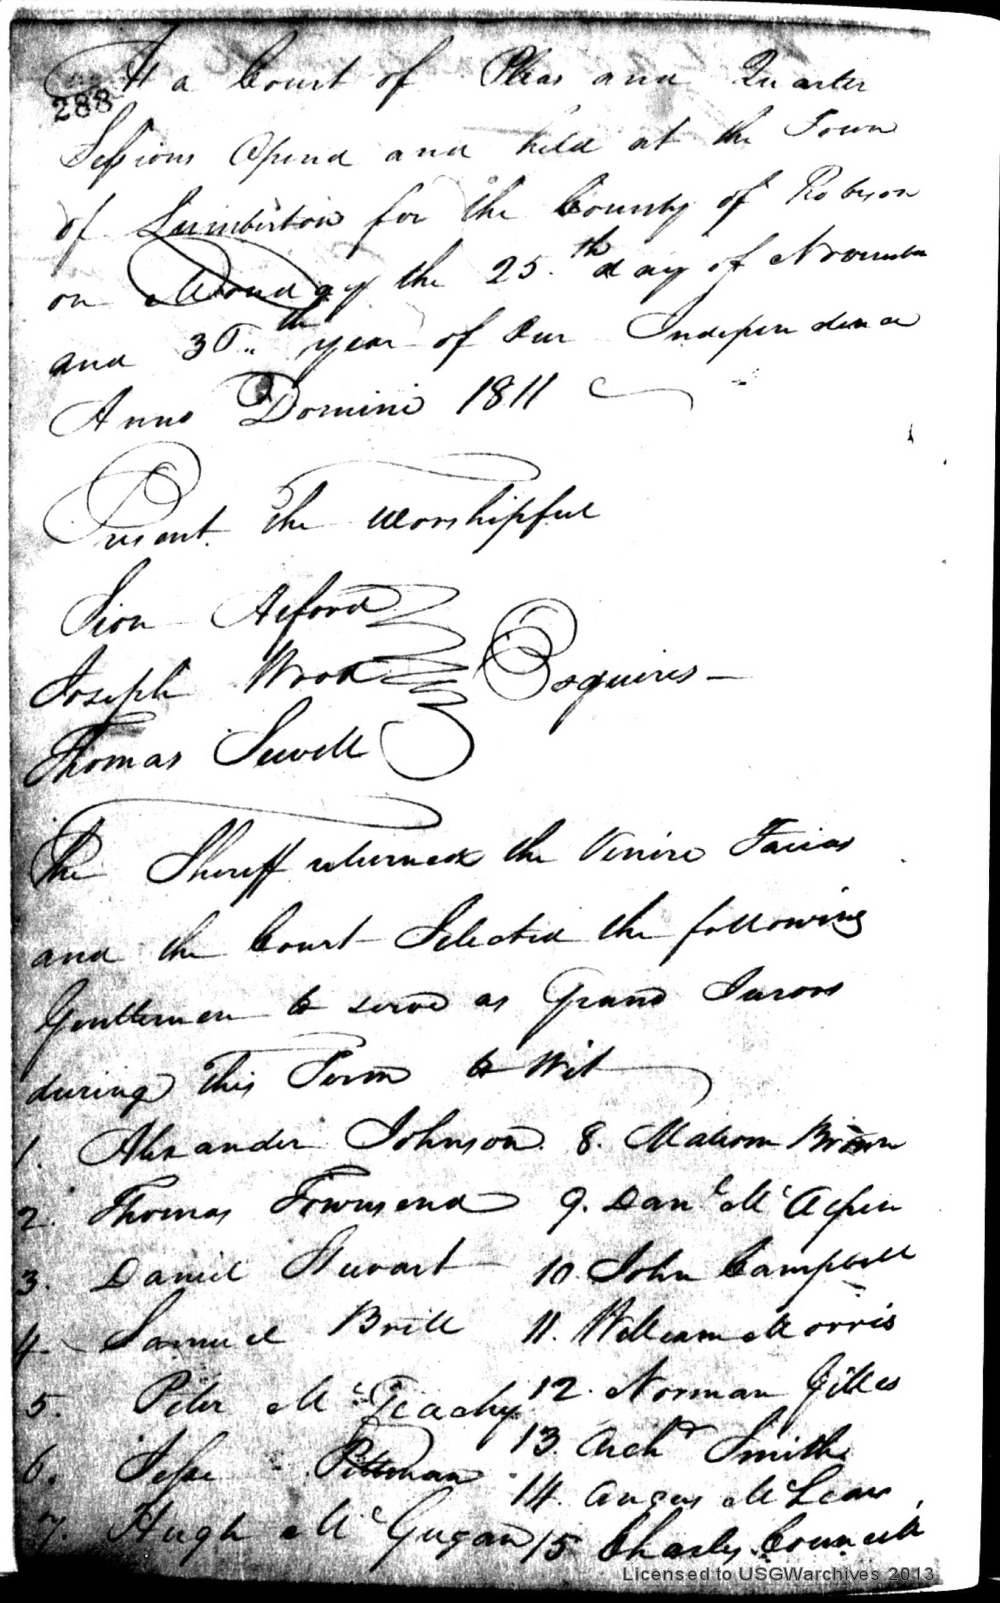 288
At a Court of Pleas and Quarter
Sessions Opend and held at the Town
of Lumberton for the County of Robeson
on Monday the 25th day of November
and 36th year of Our Independence
Anno Domini 1811
Present The Worshipful
Sion Alford
Joseph Wood Esquires
Thomas Sewell
The Sheriff returned the Venire Facias
and the Court Selected the following
Gentlemen to serve as Grand Jurors
during This Term to Wit
1. Alexander Johnson 8. Malcom Brown
2. Thomas Townsend 9. Danl McAlpin
3. Daniel Stewart 10 John Campbell
4 Samuel Britt 11. William Morris
5. Peter McGeachy 12. Norman Gilles
6. Jesse Pittman 13. Archd Smith
7. Hugh McGugan 14. Angus McLean
15 Charles Council
Licensed to USGWarchives 2013